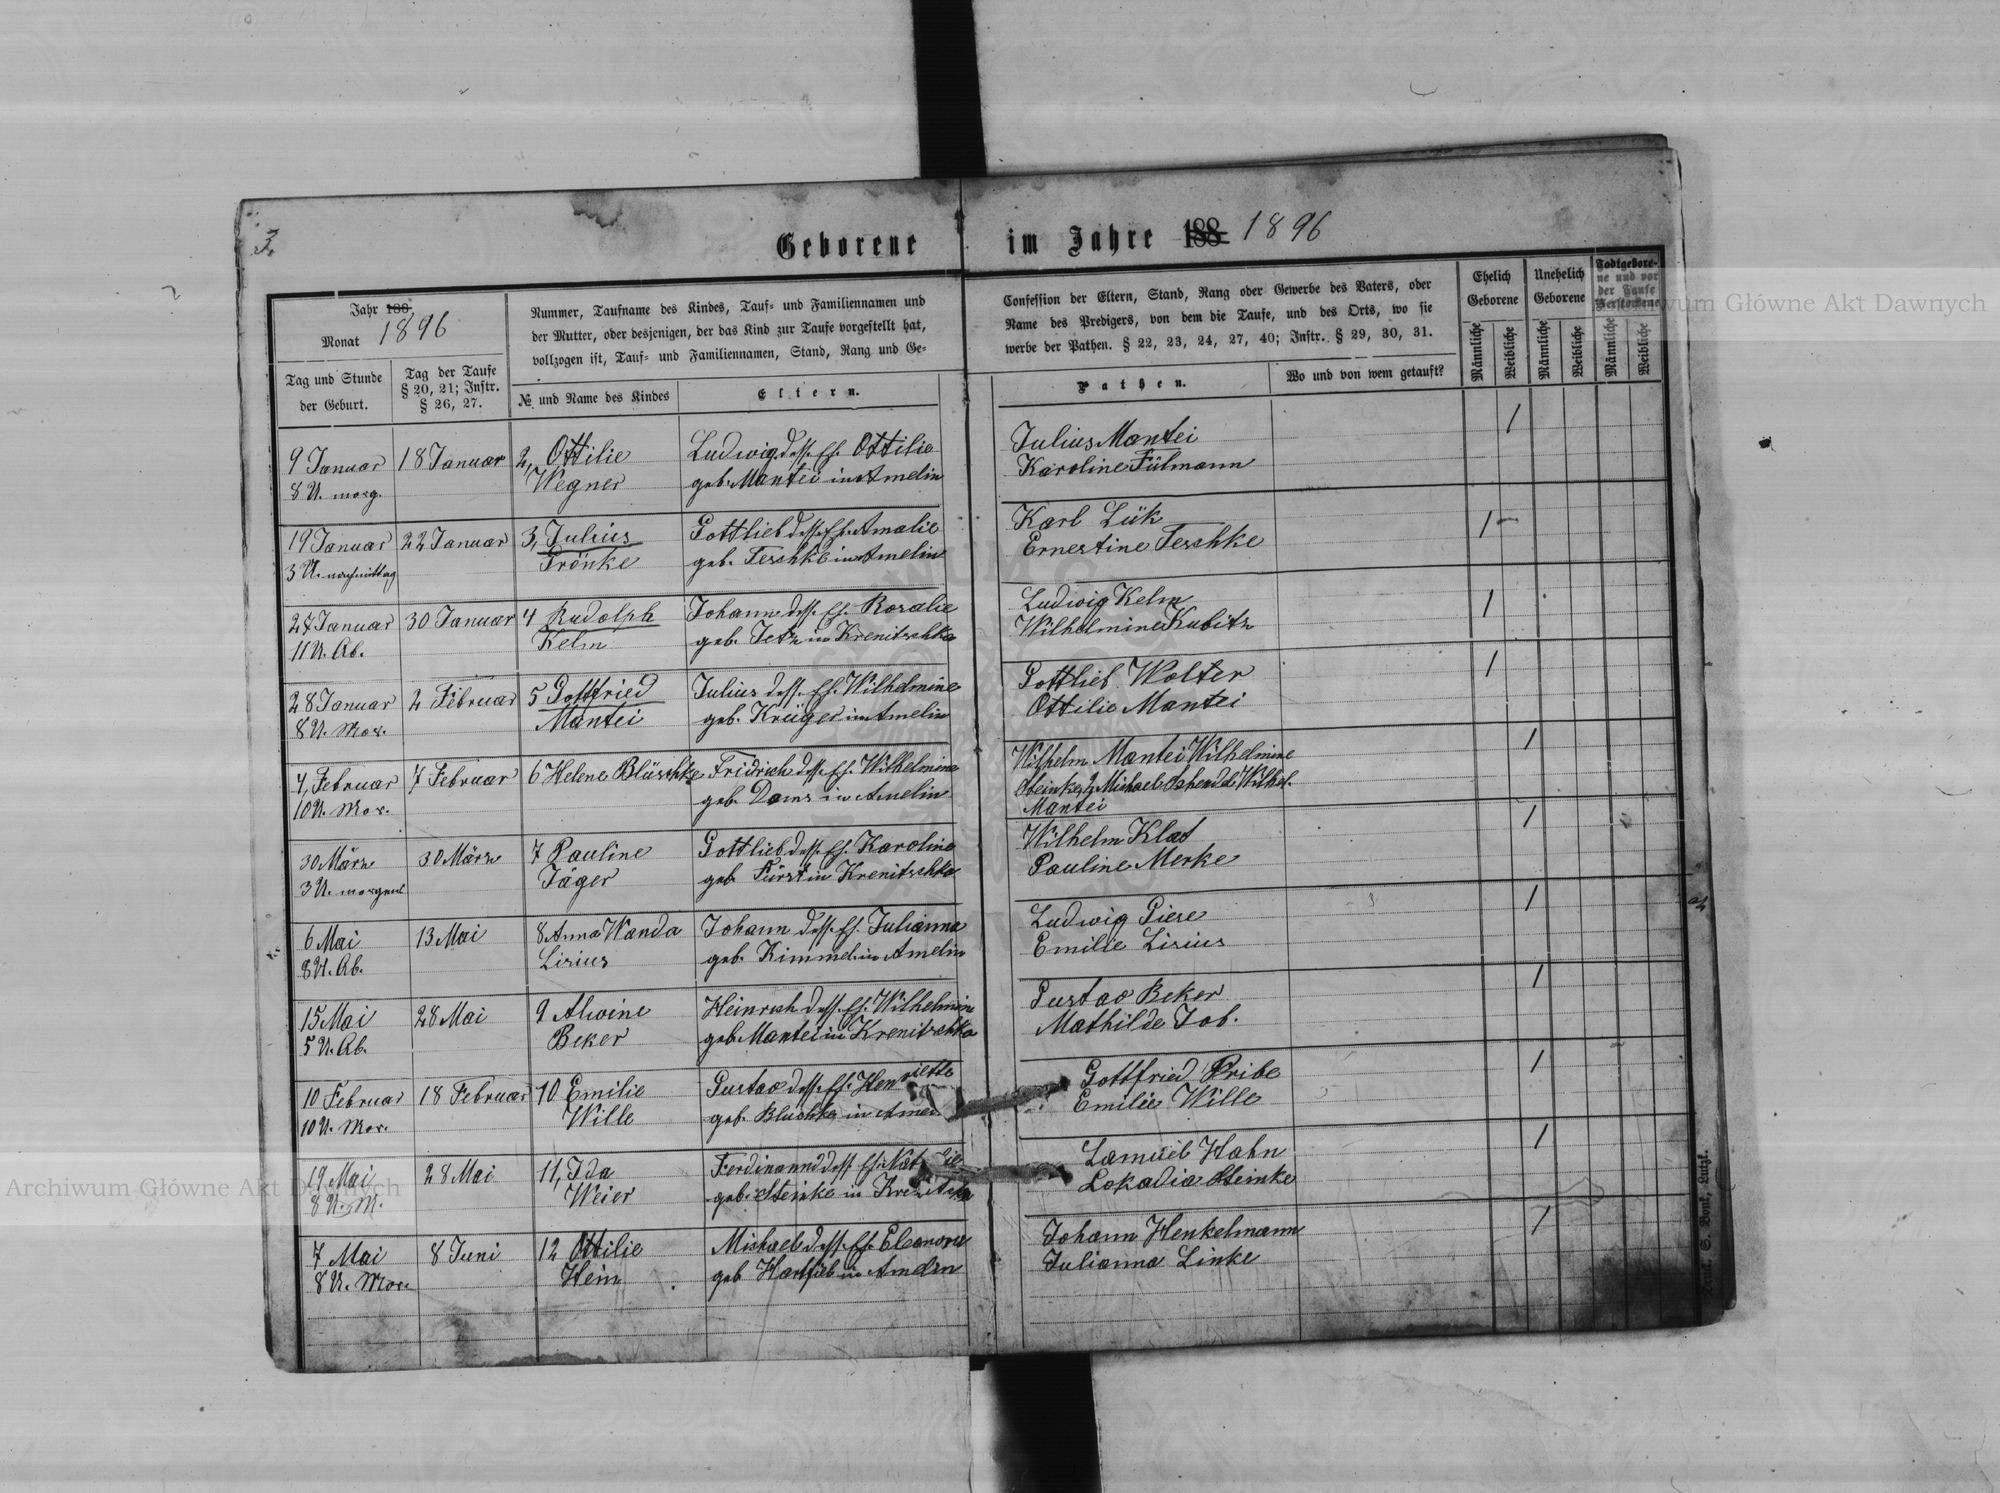 3.
Geborene im Jahre 188 1896
Jahr 188
1896
Monat
Tag und Stunde
der Geburt.
Tag der Taufe
§ 20, 21; Instr.
§ 26, 27.
Nummer, Taufname des Kindes, Tauf- und Familiennamen und
der Mutter, oder desjenigen, der das Kind zur Taufe vorgestellt hat,
vollzogen ist, Tauf- und Familiennamen, Stand, Rang und Ge-
№ und Name des Kindes
Eltern.
Confession der Eltern, Stand, Rang oder Gewerbe des Vaters, oder
Name des Predigers, von dem die Taufe, und des Orts, wo sie
werbe der Pathen. § 22, 23, 24, 27, 40; Instr. § 29, 30, 31.
Pathen.
Wo und von wem getauft?
Ehelich
Geborene
Unehelich
Geborene
Todtgebore-
ne und vor
der Taufe
Verstorbene
Männliche
Weibliche
Männliche
Weibliche
Männliche
Weibliche
9 Januar
8 U. morg.
18 Januar
2, Ottilie
Wegner
Ludwig dess. Ef. Ottilie
geb. Mantei in Amelin
Julius Mantei
Karoline Fülmann
/
19 Januar
3 U. nachmittag
22 Januar
3, Julius
Prönke
Gottlieb dess. Ef. Amalie
geb. Teschke in Amelin
Karl Lük
Ernestine Teschke
/
27 Januar
11 U. Ab.
30 Januar
4 Rudolph
Kelm
Johann dess. Ef. Rosalie
geb. Tetz in Krenitschka
Ludwig Kelm
Wilhelmine Kubitz
/
28 Januar
8 U. Mor.
2 Februar
5 Gottfried
Mantei
Julius dess. Ef. Wilhelmine
geb. Krüger in Amelin
Gottlieb Wolter
Ottilie Mantei
/
4, Februar
10 U. Mor.
7 Februar
6 Helene Blüschke
Fridrich dess. Ef. Wilhelmine
geb. Doms in Amelin
Wilhelm Mantei Wilhelmine
Steinke, Michael Wilhel.
Mantei
/
30 März
3 U. morgens
30 März
7 Pauline
Jäger
Gottlieb dess. Ef. Karoline
geb. Fürst in Krenitschka
Wilhelm Klat
Pauline Merke
/
6 Mai
8 U. Ab.
13 Mai
8 Anna Wanda
Lisius
Johann dess. Ef. Julianna
geb. Kimmel in Amelin
Ludwig Piese
Emilie Lisius
/
15 Mai
5 U. Ab.
28 Mai
9 Alwine
Beker
Heinrich dess. Ef. Wilhelmin
geb. Mantei in Krenitschka
Gustav Beker
Mathilde Job.
/
10 Februar
10 U. Mor.
18 Februar
10 Emilie
Wille
Gustav dess. Ef. Henriette
geb. Bluschke in
Gottfried Pribe
Emilie Wille
/
19 Mai
8 U. M.
28 Mai
11, Ida
Weier
Ferdinannd dess. Ef.
geb. Steinke in
Samuel Hahn
Lokadia Steinke
/
7 Mai
8 U. Mor.
8 Juni
12 Ottilie
Hein
Michael dess. Ef. Eleonore
geb. Hartfieb in Amelin
Johann Henkelmann
Julianna Linke
/
Archiwum Główne Akt Dawnych